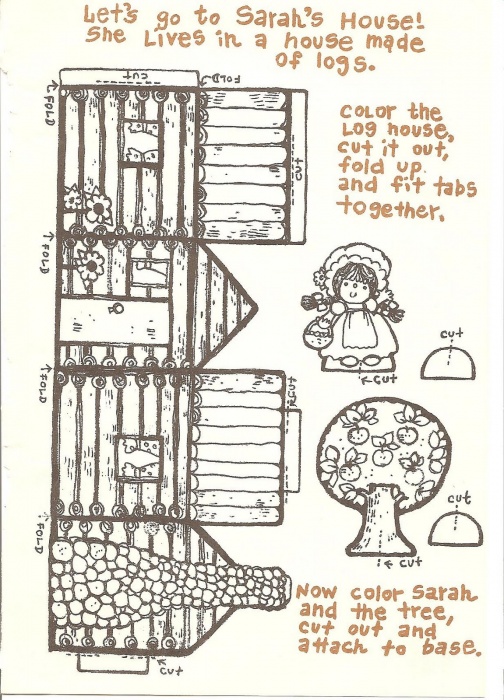 Let's go to Sarah's House!
She Lives in a house made
of logs.
cut
FOLD
FOLD
cut
Color the
Log house,
cut it out,
fold up
and fit tabs
together.
FOLD
cut
cut
FOLD
cut
cut
cut
FOLD
Now color Sarah
and the tree,
cut out and
attach to base.
cut